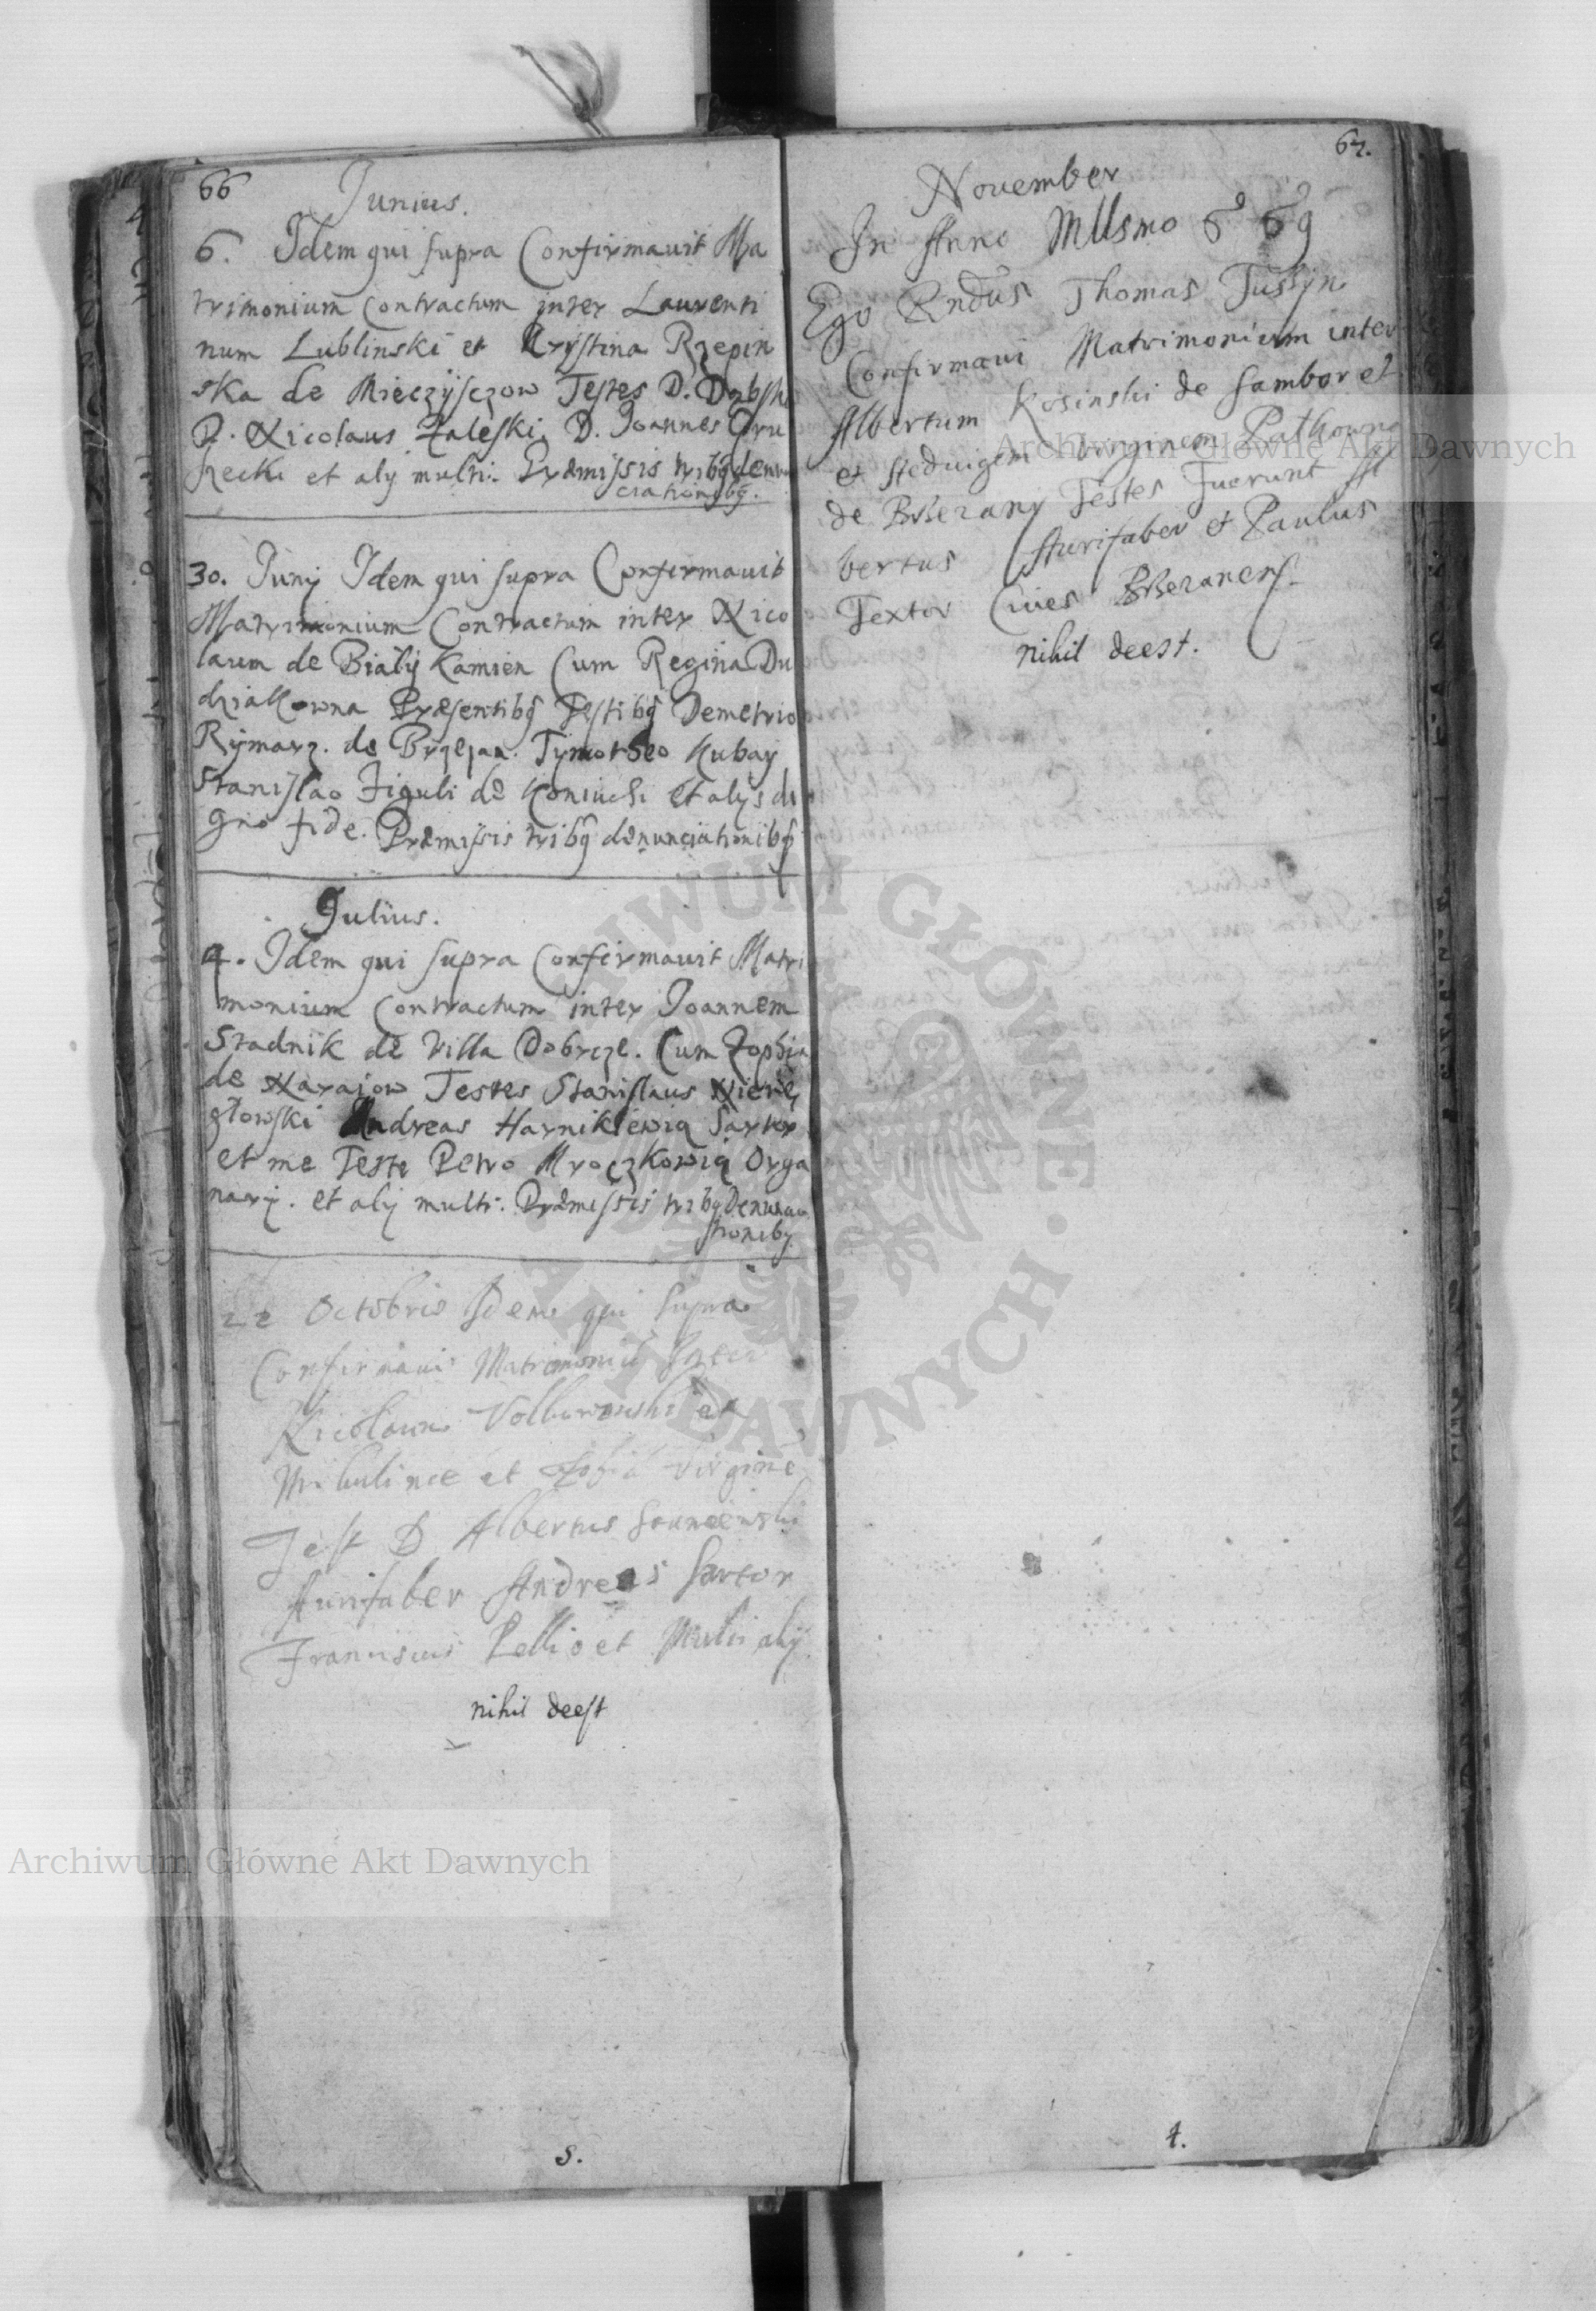 66
Junius.
6. Idem qui supra Confirmavit Ma
trimonium Contractum inter Laurenti
num Lublinski et Krystina Rzepin
ska de Mieczysczow Testes D. Dębski
D. Nicolaus Zaleski, D. Joannes
et alij multi. Præmissis tribq denun
ciationibq.
30. Junij Idem qui supra Confirmavit
Matrimonium Contractum inter Nico
laum de Biały Kamien Cum Regina Du
dziakowna Præsentibq Testibq Demetrio
Rymarz. de Brzezan. Tymotheo Kubaj
Stanislao Figuli de Koniuchi et alijs di
gno fide. Præmissis tribq denunciationibq
Julius.
4. Idem qui supra Confirmavit Matri
monium Contractum inter Joannem
Stadnik de Villa Dobrcze. Cum Zophia
de Naraiow Testes Stanislaus
Andreas Harnikiewicz Sartor
et me Teste Petro Mroczkowicz Orga
narij. et alij multi. Præmissis tribq Denuncia
tionibq
22 Octobris Idem qui supra
Confirmavi Matrimoniū Inter
Nicolaum et
et Zofia virginē
Test D Albertus
Aurifaber Andreas Sartor
Franciscus Pellio et Multi alij
nihil deest
5.
67.
November
In Anno Millsmo 6 69
Ego Rndus Thomas
Confirmavi Matrimonium inter
Albertum Kosinski de Sambor et
et Hedvigem Virginem
de Brzezany Testes Fuerunt Al
bertus Aurifaber et Paulus
Textor Cives Brzezanens.
nihil deest.
4.
Archiwum Główne Akt Dawnych
Archiwum Główne Akt Dawnych
ARCHIWUM GŁÓWNE AKT DAWNYCH